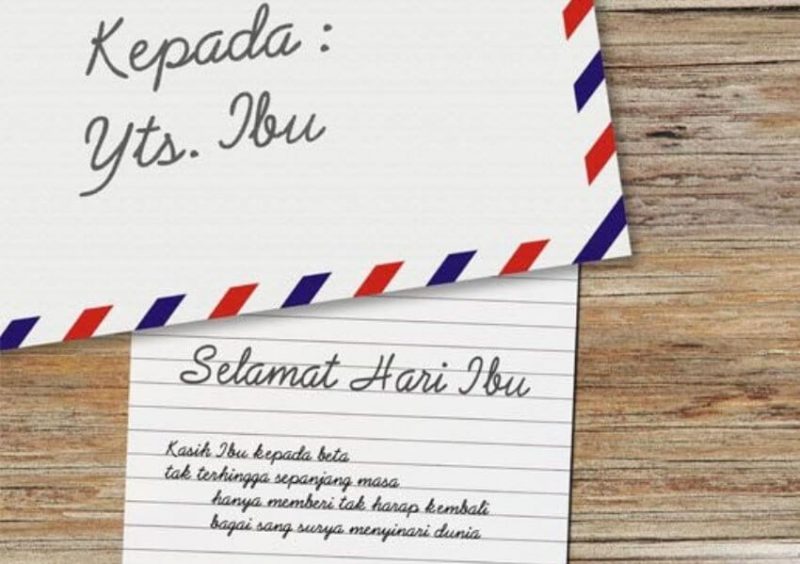 Kepada :
Yts. Ibu
Selamat Hari Ibu
Kasih Ibu kepada beta
tak terhingga sepanjang masa
hanya memberi tak harap kembali
bagai sang surya menyinari dunia